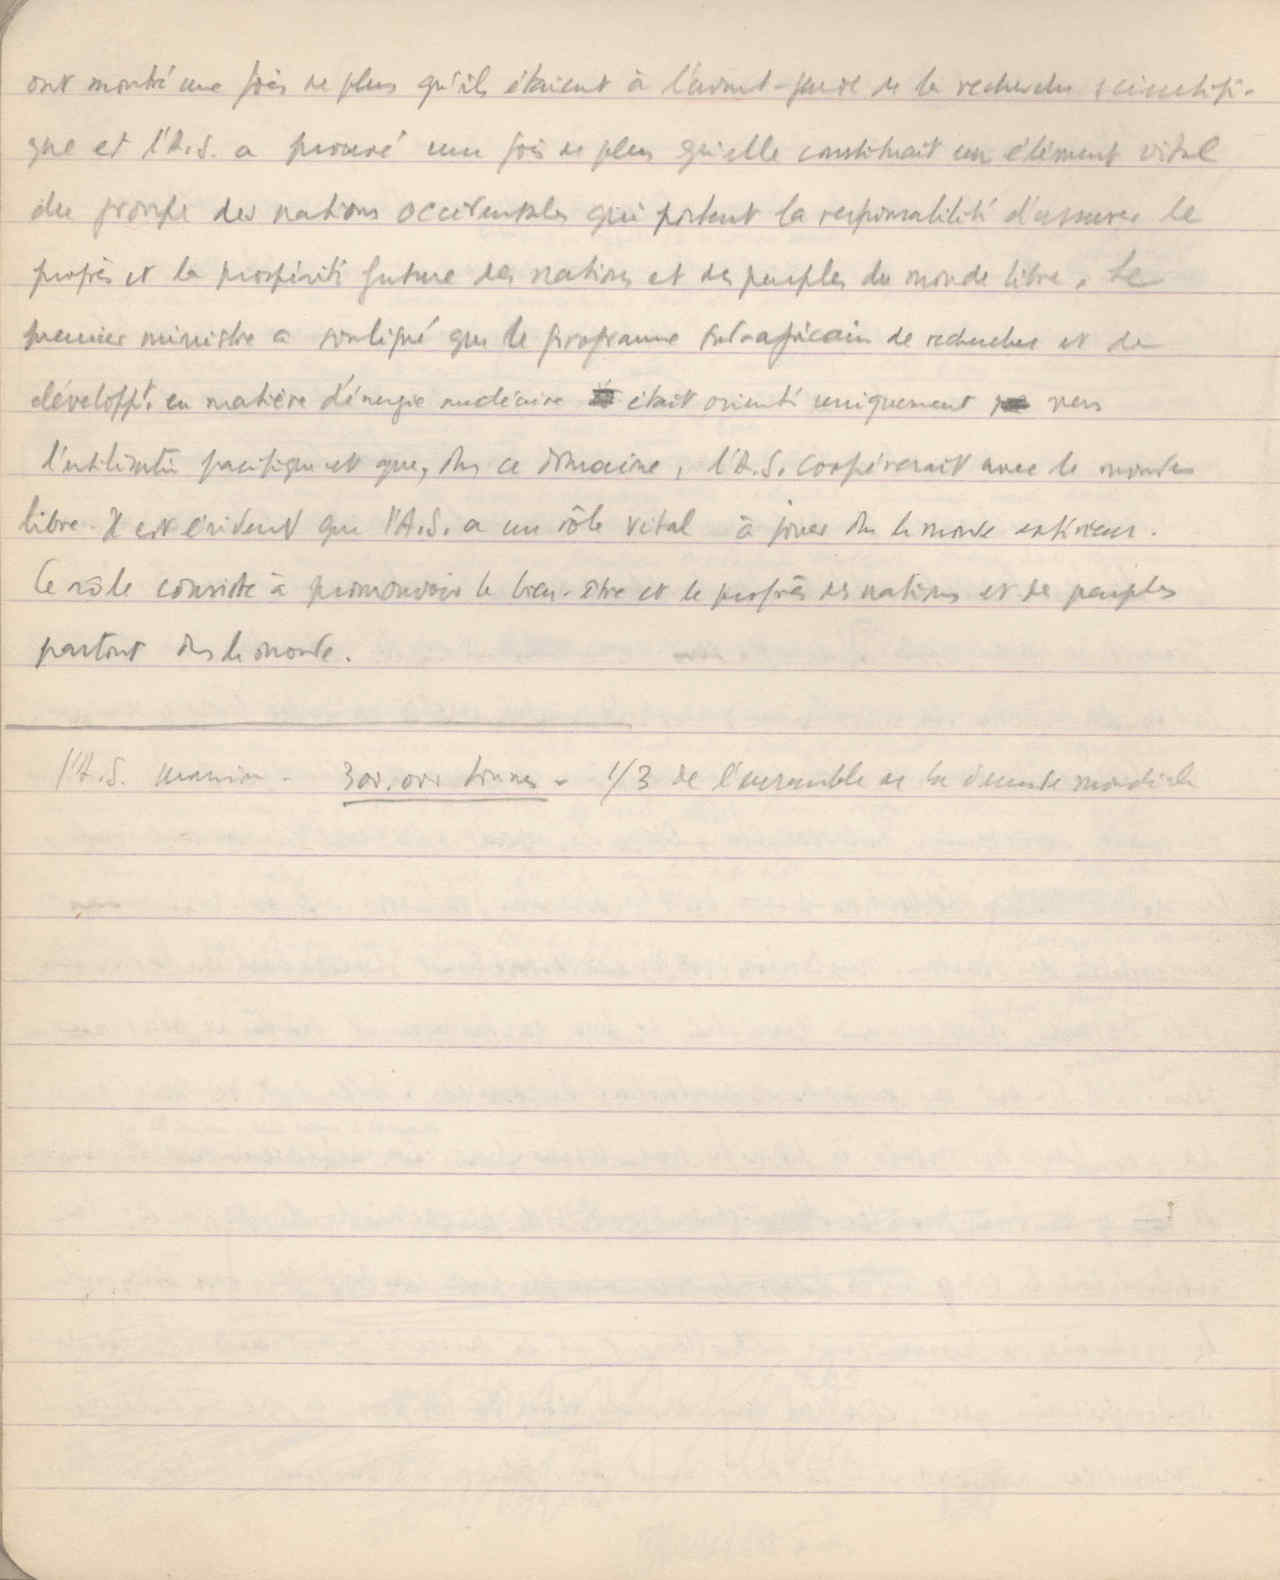 ont montré une fois de plus qu'ils étaient à l'avant-garde de la recherche scientifi-
que et l'A.S. a prouvé une fois de plus qu'elle constituait un élément vital
du groupe des nations occidentales qui portent la responsabilité d'assurer le
progrès et la prospérité future des nations et des peuples du monde libre. Le
premier ministre a souligné que le programme sud-africain de recherches et de
développt. en matière d'énergie nucléaire était orienté uniquement vers
l'utilisation pacifique et que, ds ce domaine, l'A.S. coopérerait avec le monde
libre. Il est évident que l'A.S. a un rôle vital à jouer ds le monde extérieur.
Ce rôle consiste à promouvoir le bien-être et le progrès des nations et des peuples
partout ds le monde.
l'A.S. uranium - 300.000 tonnes - 1/3 de l'ensemble de la mondiale